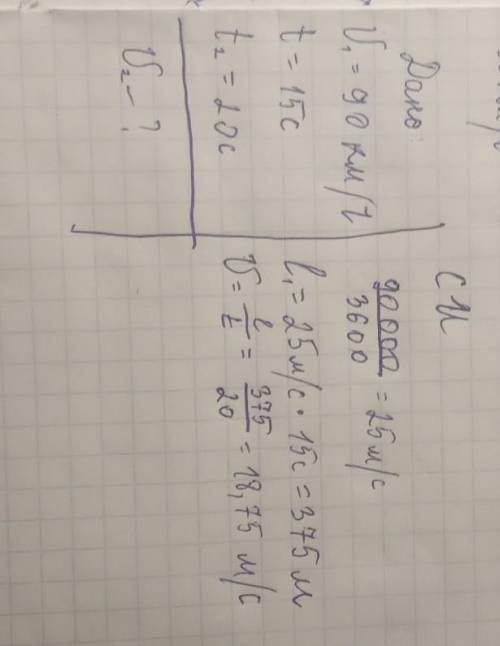 Дано:
V₁ = 90 км/ч
t = 15 с
t₂ = 20 с
V₂ - ?
СИ
90000/3600 = 25 м/с
l₁ = 25 м/с · 15 с = 375 м
V = l/t = 375/20 = 18,75 м/с